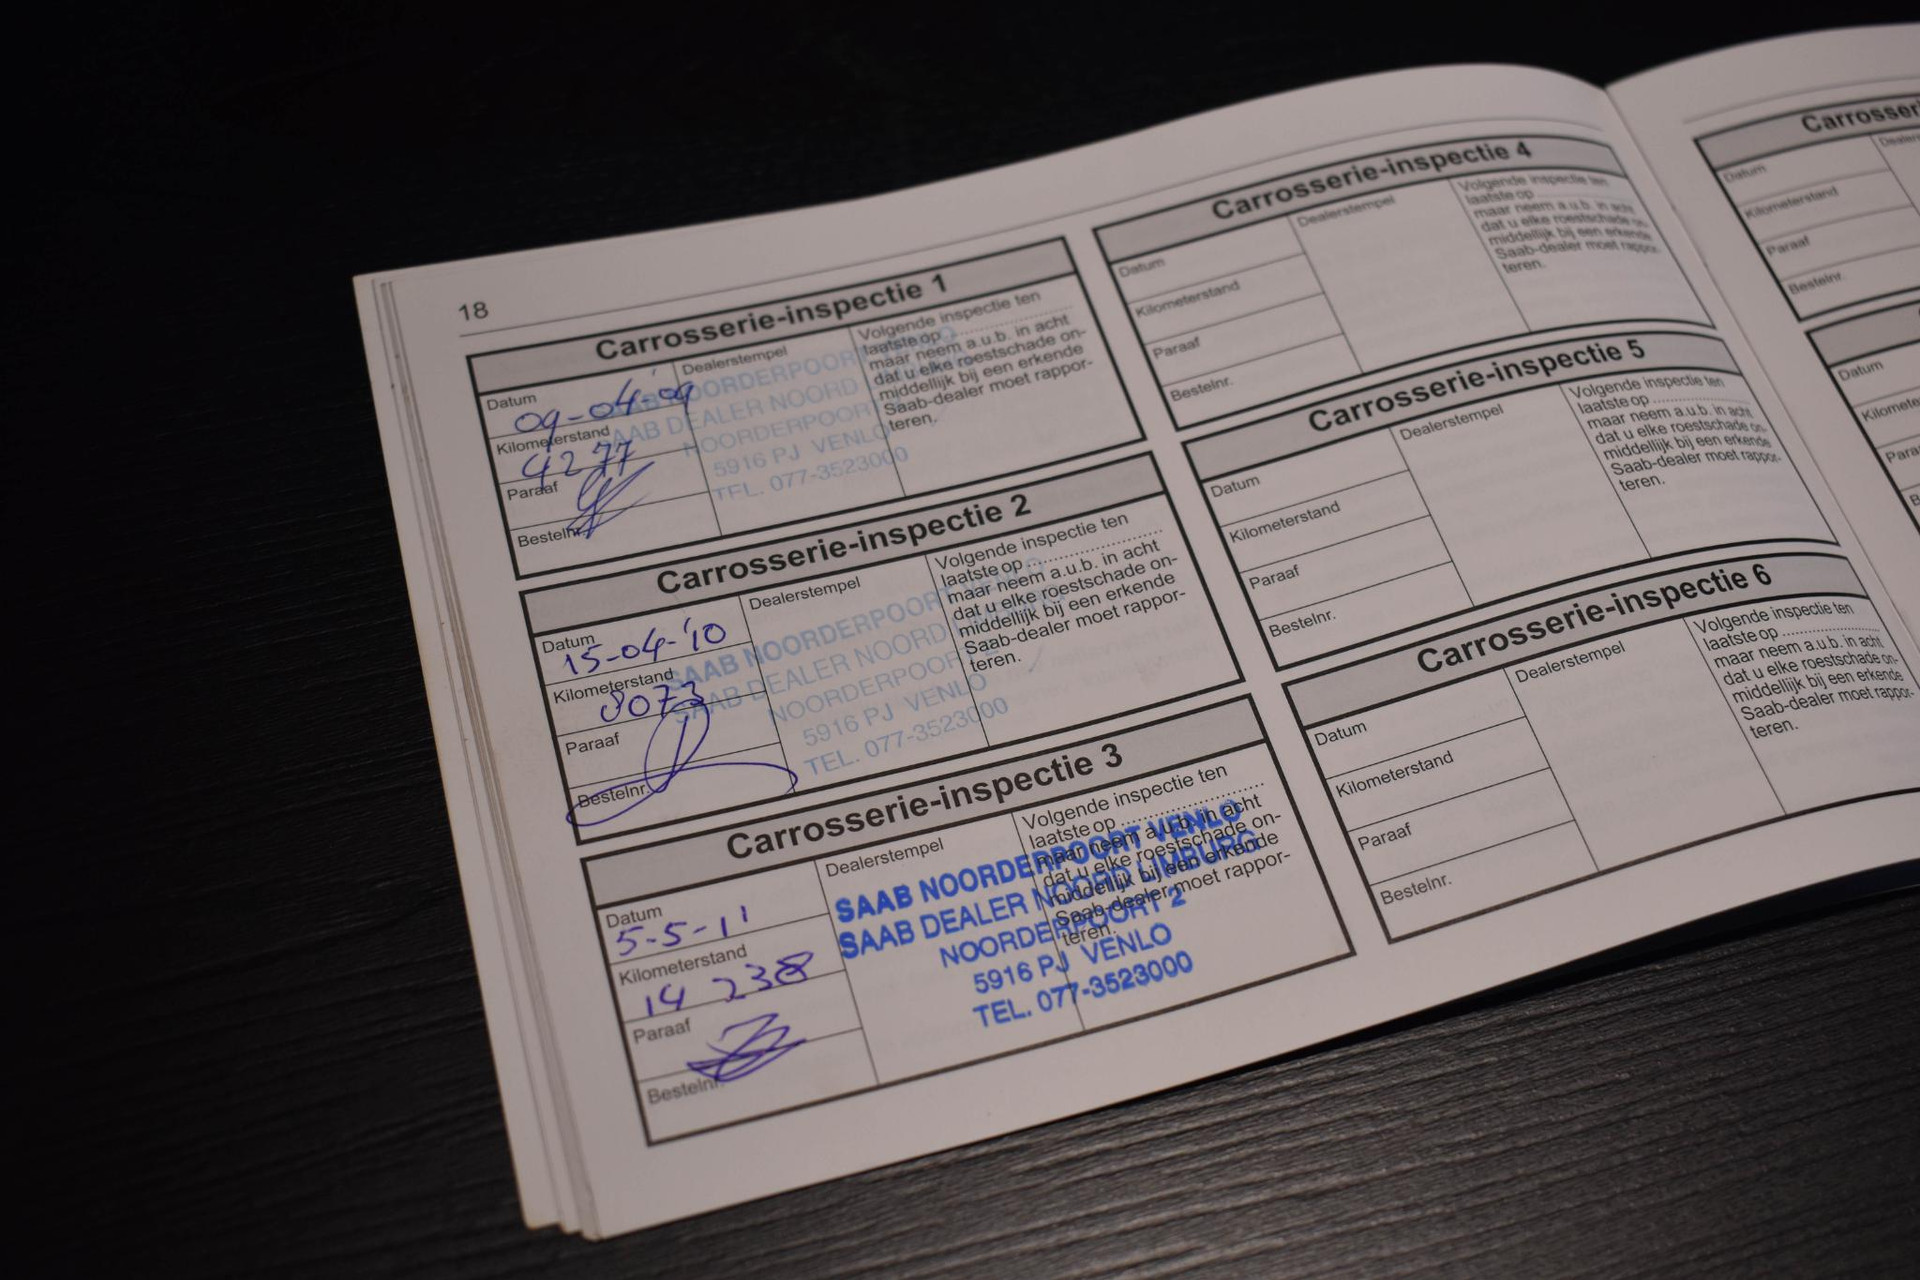 18
Carrosserie-inspectie 1
Datum
09-04-09
Kilometerstand
4277
Paraaf
Bestelnr.
Dealerstempel
SAAB NOORDERPOORT
SAAB DEALER NOORD
NOORDERPOORT
5916 PJ VENLO
TEL. 077-3523000
Volgende inspectie ten
laatste op ....................
maar neem a.u.b. in acht
dat u elke roestschade on-
middellijk bij een erkende
Saab-dealer moet rappor-
teren.
Carrosserie-inspectie 2
Datum
15-04-'10
Kilometerstand
8073
Paraaf
Bestelnr.
Dealerstempel
SAAB NOORDERPOORT VENLO
SAAB DEALER NOORD
NOORDERPOORT 2
5916 PJ VENLO
TEL. 077-3523000
Volgende inspectie ten
laatste op ....................
maar neem a.u.b. in acht
dat u elke roestschade on-
middellijk bij een erkende
Saab-dealer moet rappor-
teren.
Carrosserie-inspectie 3
Datum
5-5-11
Kilometerstand
14 238
Paraaf
Bestelnr.
Dealerstempel
SAAB NOORDERPOORT VENLO
SAAB DEALER NOORD LIMBURG
NOORDERPOORT 2
5916 PJ VENLO
TEL. 077-3523000
Volgende inspectie ten
laatste op ....................
maar neem a.u.b. in acht
dat u elke roestschade on-
middellijk bij een erkende
Saab-dealer moet rappor-
teren.
Carrosserie-inspectie 4
Datum
Kilometerstand
Paraaf
Bestelnr.
Dealerstempel
Volgende inspectie ten
laatste op
maar neem a.u.b. in acht
dat u elke roestschade on-
middellijk bij een erkende
Saab-dealer moet rappor-
teren.
Carrosserie-inspectie 5
Datum
Kilometerstand
Paraaf
Bestelnr.
Dealerstempel
Volgende inspectie ten
laatste op ....................
maar neem a.u.b. in acht
dat u elke roestschade on-
middellijk bij een erkende
Saab-dealer moet rappor-
teren.
Carrosserie-inspectie 6
Datum
Kilometerstand
Paraaf
Bestelnr.
Dealerstempel
Volgende inspectie ten
laatste op ....................
maar neem a.u.b. in acht
dat u elke roestschade on-
middellijk bij een erkende
Saab-dealer moet rappor-
teren.
Datum
Kilometerstand
Paraaf
Bestelnr.
Datum